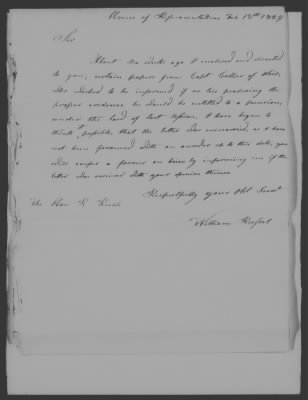 House of Representatives Feb 18th 1839
Sir
About six weeks ago I enclosed and directed
to you, certain papers from Capt Collier of Ohio,
who wished to be informed if on his producing the
proper evidence he would be entitled to a pension,
under the law of last Session, I have begun to
think it possible, that the letter has miscarried, as I have
not been favoured with an answer up to this date, you
will confer a favour on me by informing me if the
letter was received with your opinion thereon
Respectfully your Obt Servt
William
The Hon